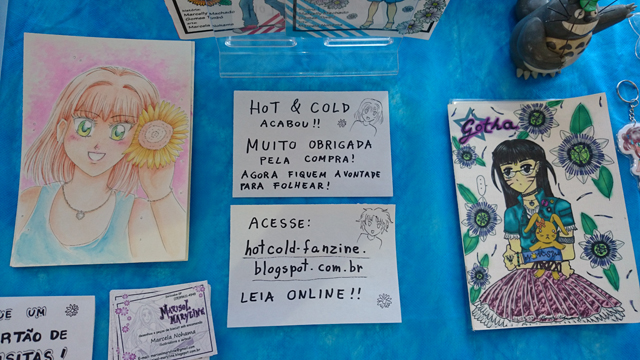 Marcela Machado
HOT & COLD
ACABOU!!
MUITO OBRIGADA
PELA COMPRA!
AGORA FIQUEM A VONTADE
PARA FOLHEAR!
ACESSE:
hotcold-fanzine.
blogspot.com.br
LEIA ONLINE!!
Gotha
DE UM
RTÃO DE
SITAS!
MARISOL
MARYLINE
Marcela Nohama